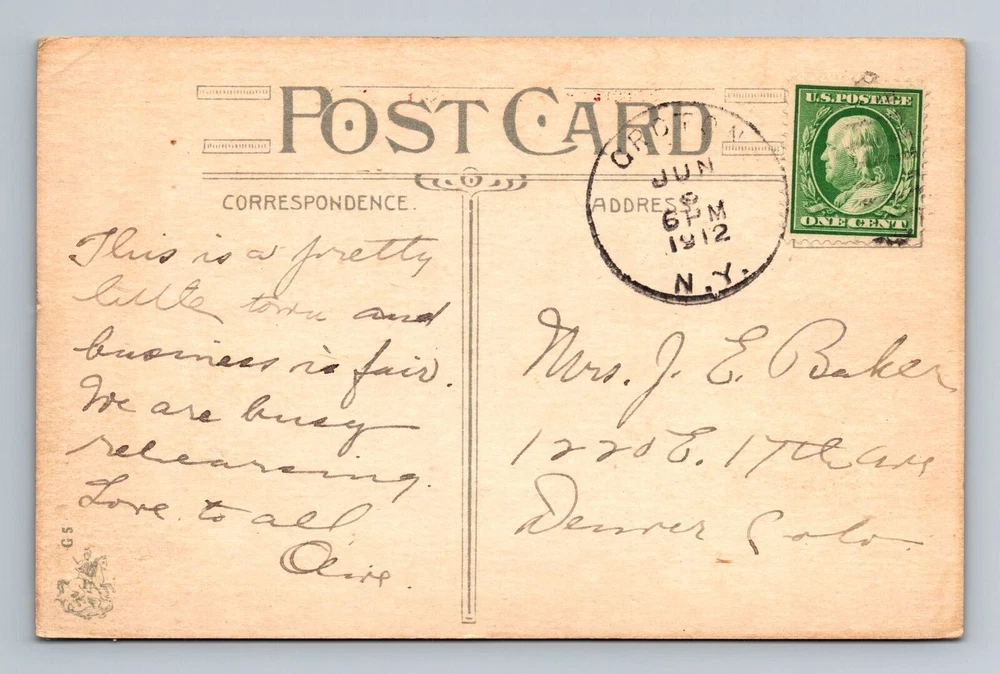 POST CARD
CORRESPONDENCE.
ADDRESS
U.S. POSTAGE
ONE CENT
JUN
6 PM
1912
N.Y.
This is a pretty
little town and
business is fair.
We are busy
rehearsing.
Love to all
Mrs. J. E. Baker
1220 E. 17th ave
Denver Colo.
G5